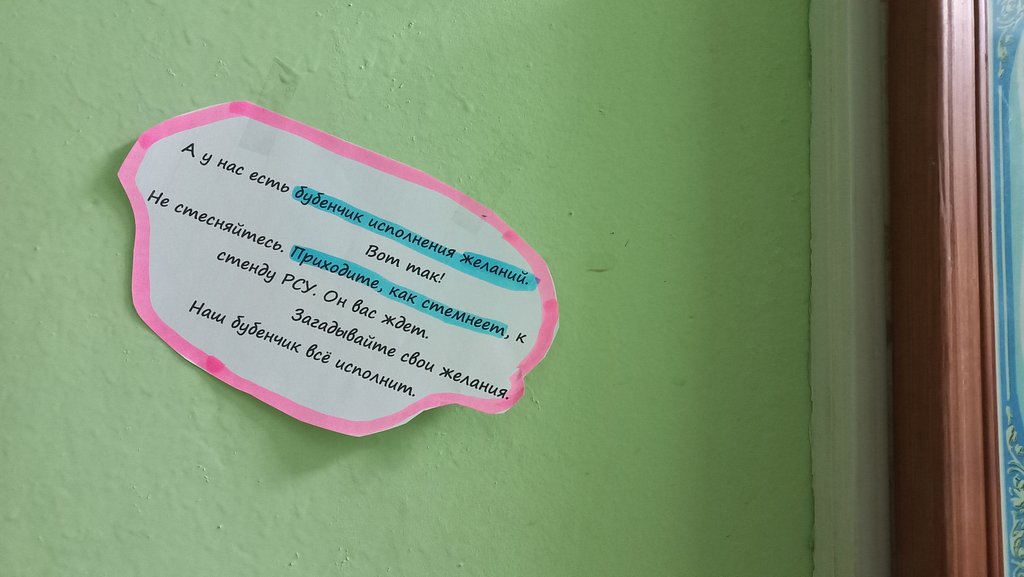 А у нас есть бубенчик исполнения желаний.
Вот так!
Не стесняйтесь. Приходите, как стемнеет, к
стенду РСУ. Он вас ждет.
Загадывайте свои желания.
Наш бубенчик всё исполнит.